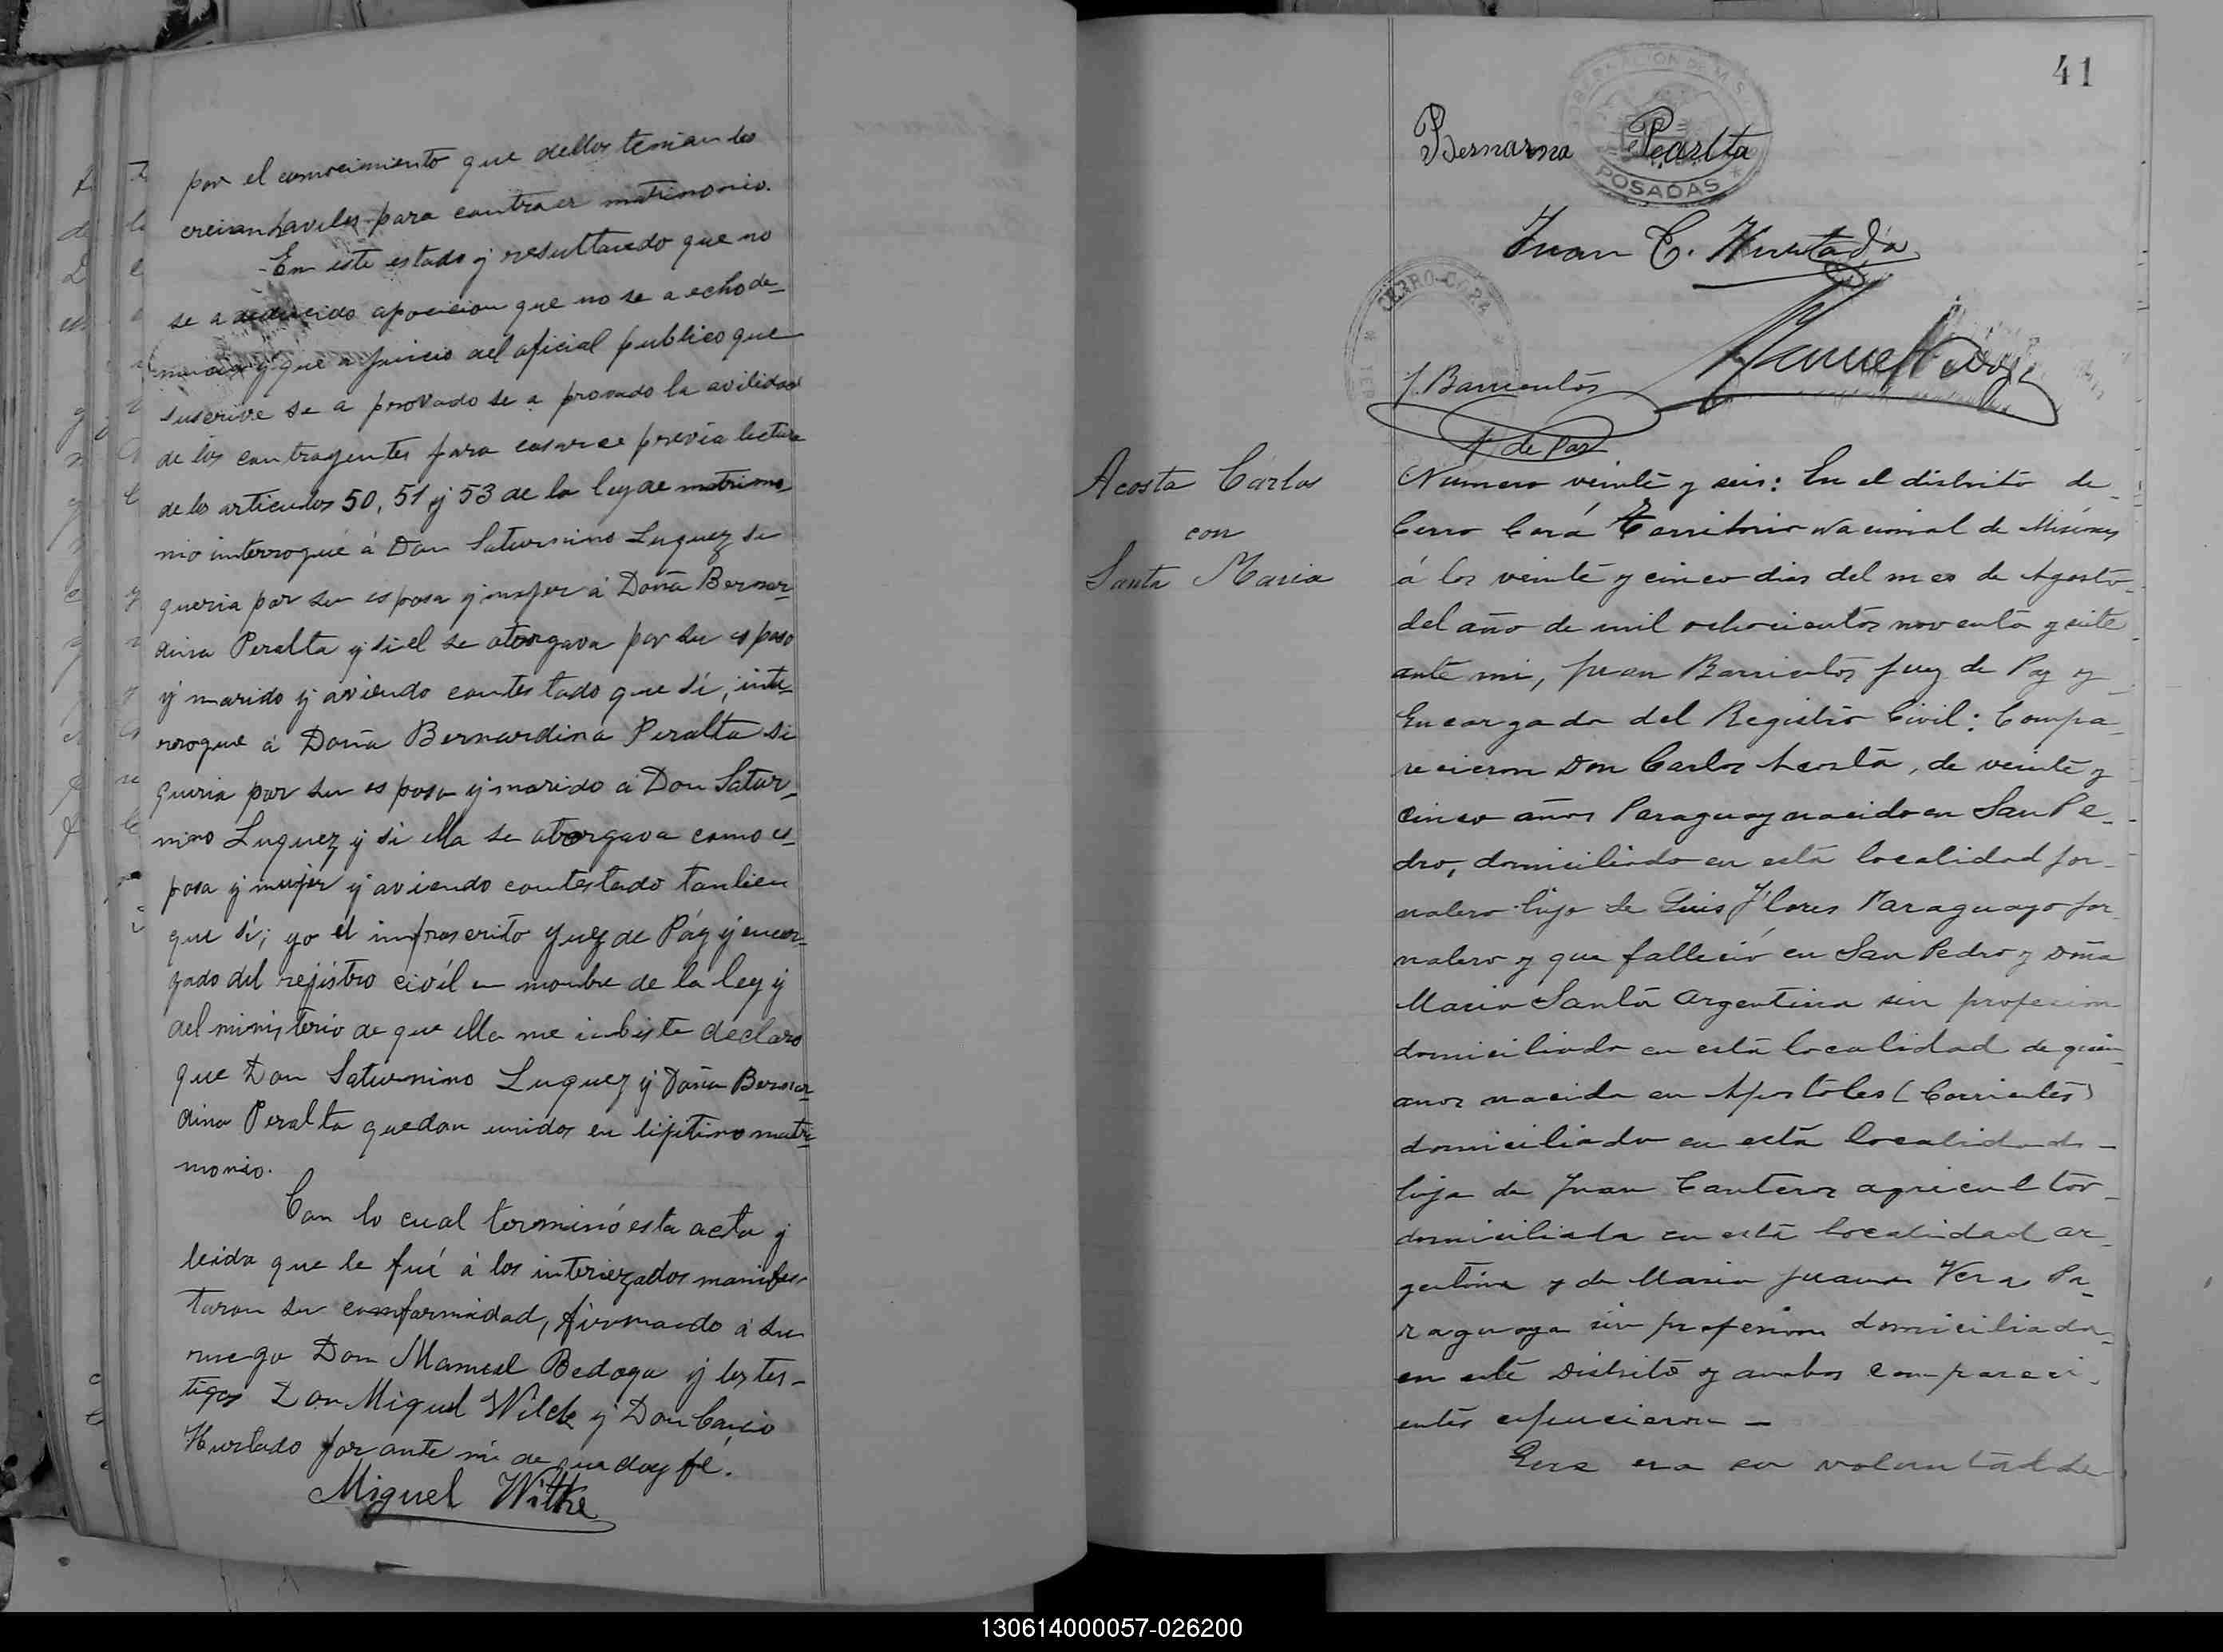 por el conocimiento que dellos tenian los
creian haviles para contraer matrimonio.
En este estado y resultando que no
se a deducido oposicion que no se a echo de-
nuncia y que a juicio del oficial publico que
suscrive se a provado se a provado la avilidad
de los contrayentes para casarce previa lectura
de los articulos 50, 51 y 53 de la ley de matrimo-
nio interrogué á Don Saturnino Luquez si
queria por su esposa y mujer á Doña Bernar-
dina Peralta y si el se otorgava por su esposo
y marido y aviendo contestado que sí, inte-
rrogue á Doña Bernardina Peralta si
queria por su esposo y marido á Don Satur-
nino Luquez y si ella se otorgava como es-
posa y mujer y aviendo contestado tanbien
que sí; yo el infrascrito Yuez de Páz y encar-
gado del rejistro civíl en nonbre de la ley y
del ministerio de que ella me inbiste declaro
que Don Saturnino Luquez y Doña Bernar-
dina Peralta quedan unidos en lijitimo matri-
monio.
Con lo cual terminó esta acta y
leida que le fué á los interiezados manifes-
taron su comformidad, firmando á su
ruego Don Manuel Bedoya y los tes-
tigos Don Miguel Wilck y Don Hurtado por ante mi de que doy fé.
Miguel Witke
41
GOBERNACION DE MISIONES
POSADAS
Bernarna Pearlta
Juan C. Hurtado
CERRO CORÁ
J. Barrientos
J. de Paz
Manuel
Acosta Cárlos
con
Santa Maria
Número veinte y seis: En el distrito de
Cerro Corá Territorio Nacional de Misiones
á los veinte y cinco dias del mes de Agosto
del año de mil ochocientos noventa y siete
ante mi, Juan Barrientos Juez de Paz y
Encargado del Registro Civil: Compa-
recieron Don Carlos Acosta, de veinte y
cinco años Paraguay nacido en San Pe-
dro, domiciliado en esta localidad jor-
nalero hijo de Luis Flores Paraguayo jor
nalero y que falleció en San Pedro y Doña
Maria Santa Argentina sin profecion
domiciliada en esta localidad de quin-
anos nacida en Apostoles (Corrientes)
domiciliada en esta localidad
hija de Juan Canteros agricultor
domiciliada en esta localidad ar-
gentina y de Maria Juana Vera Pa-
raguaya sin profesion domiciliada
en este Distrito y ambos compareci-
entes espucieron —
Que era su voluntad de
130614000057-026200